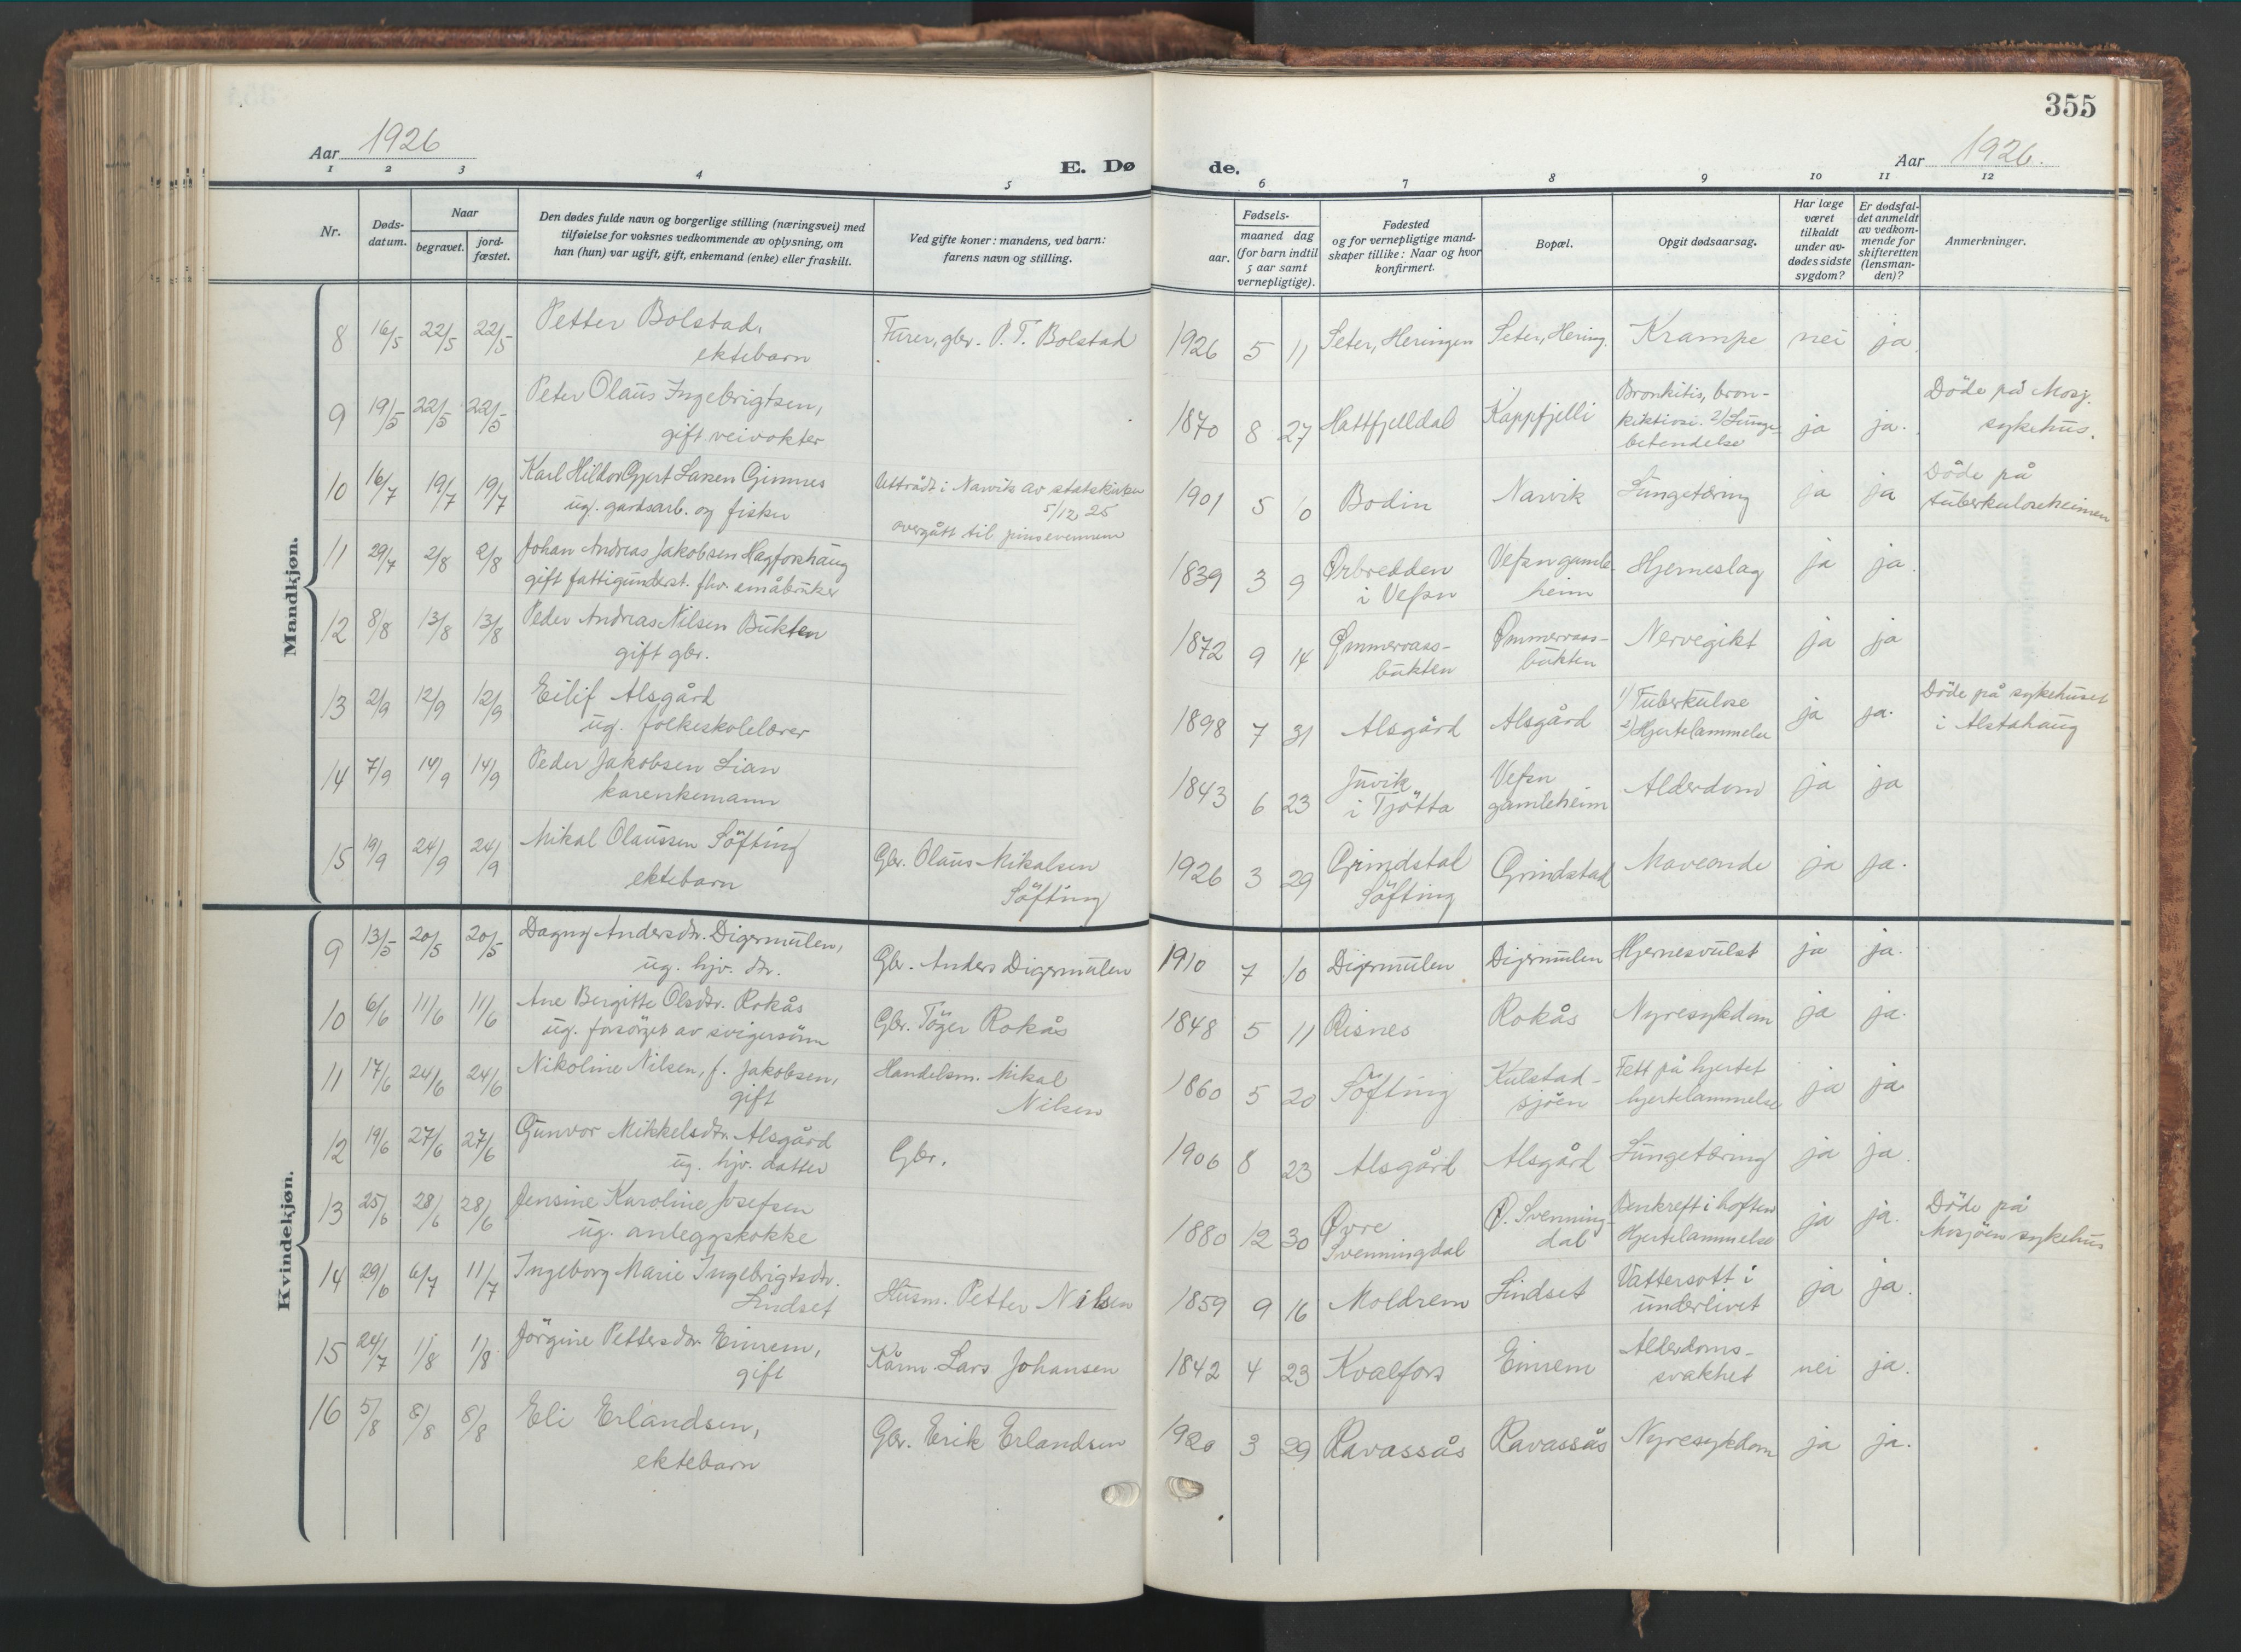 355
Aar 1926
E. Dø de.
Aar 1926.
1 2 3 4 5 6 7 8 9 10 11 12
Nr.
Døds-
datum.
Naar
begravet.
jord-
fæstet.
Den dødes fulde navn og borgerlige stilling (næringsvei) med
tilføielse for voksnes vedkommende av oplysning, om
han (hun) var ugift, gift, enkemand (enke) eller fraskilt.
Ved gifte koner: mandens, ved barn:
farens navn og stilling.
Fødsels-
aar.
maaned dag
(for barn indtil
5 aar samt
vernepligtige).
Fødested
og for vernepligtige mand-
skaper tillike: Naar og hvor
konfirmert.
Bopæl.
Opgit dødsaarsag.
Har læge
været
tilkaldt
under av-
dødes sidste
sygdom?
Er dødsfal-
det anmeldt
av vedkom-
mende for
skifteretten
(lensman-
den)?
Anmerkninger.
Mandkjøn.
8 16/5 22/5 22/5 Petter Bolstad,
ektebarn
Furer, gbr. P. T. Bolstad
1926 5 11 Seter, Heringen Seter, Hering. Krampe nei ja
9 19/5 22/5 22/5 Peter Olaus Ingebrigtsen,
gift veivokter
1870 8 27 Hattfjelldal Kappfjelli
Bronkitis, bron-
kiktiosi. 2) Lunge-
betendelse
ja ja.
Döde på Mosj.
sykehus.
10 16/7 19/7 19/7 Karl Hildor Gjert Larsen Gimnes
ug. gardsarb. og fisker
Uttrådt i Narvik av statskirken
5/12 25
overgått til pinsevennene
1901 5 10 Bodin Narvik Lungetæring ja ja
Døde på
tuberkuloseheimen
11 29/7 2/8 2/8 Johan Andreas Jakobsen Hagforshaug
gift fattigunderst. fhv. småbruker
1839 3 9 Ørbredden
i Vefsn
Vefsn gamle-
heim
Hjerneslag ja ja.
12 8/8 13/8 13/8 Peder Andreas Nilsen Bukten
gift gbr.
1872 9 14 Ømmervass-
bukten
Ømmervass-
bukten
Nervegikt ja ja
13 2/9 12/9 12/9 Eilif Alsgård
ug. folkeskolelærer
1898 7 31 Alsgård Alsgård
1) Tuberkulose
2) Hjertelammelse
ja ja.
Döde på sykehuset
i Alstahaug
14 7/9 14/9 14/9 Peder Jakobsen Lian
kårenkemann
1843 6 23 Juvik
i Tjötta
Vefsn
gamleheim
Alderdom ja ja
15 19/9 24/9 24/9 Mikal Olaussen Söfting
ektebarn
Gbr. Olaus Mikalsen
Söfting
1926 3 29 Grindstad
Söfting
Grindstad Maveonde ja ja.
Kvindekjøn.
9 13/5 20/5 20/5 Dagny Andersdtr. Digermulen,
ug. hjv. dtr.
Gbr. Anders Digermulen
1910 7 10 Digermulen Digermulen Hjernesvulst ja ja.
10 6/6 11/6 11/6 Ane Bergitte Olsdtr. Rokås
ug. forsörget av svigersönn
Gbr. Töger Rokås
1848 5 11 Risnes Rokås Nyresykdom ja ja.
11 17/6 24/6 24/6 Nikoline Nilsen, f. Jakobsen,
gift
Handelsm. Mikal
Nilsen
1860 5 20 Söfting
Kulstad-
sjöen
Fett på hjertet
hjertelammelse
ja ja
12 19/6 27/6 27/6 Gunvor Mikkelsdtr. Alsgård
ug. hjv. datter
Gbr.
1906 8 23 Alsgård Alsgård Lungetæring ja ja.
13 25/6 28/6 28/6 Jensine Karoline Josefsen
ug. anleggskokke
1880 12 30 Øvre
Svenningdal
Ø. Svenning-
dal
Benkreft i hoften
Hjertelammelse
ja ja.
Döde på
Mosjöen sykehus
14 29/6 6/7 11/7 Ingeborg Marie Ingebrigtsdtr.
Lindset
Husm. Petter Nilsen
1859 9 16 Moldrem Lindset
Vattersott i
underlivet
ja ja.
15 24/7 1/8 1/8 Jörgine Pettersdtr. Einrem,
gift
Kårm. Lars Johansen
1842 4 23 Kvalfors Einrem
Alderdoms-
svakhet
nei ja.
16 5/8 8/8 8/8 Eli Erlandsen,
ektebarn
Gbr. Erik Erlandsen
1920 3 29 Ravassås Ravassås Nyresykdom ja ja.